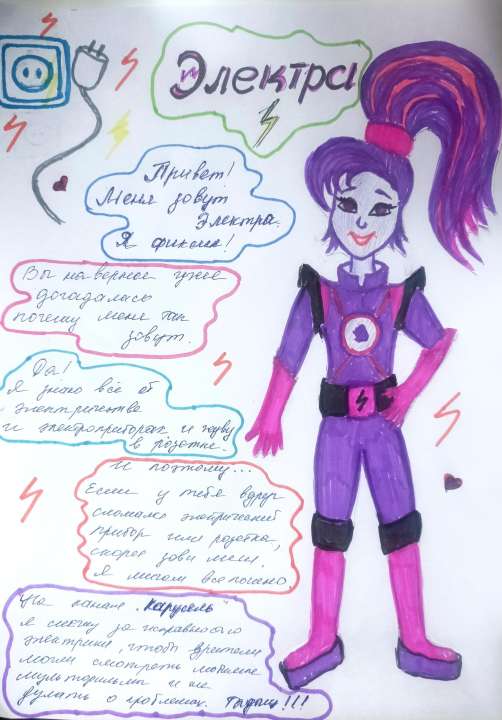 Электра
Привет!
Меня зовут
Электра.
Я фиксик!
Вы наверное уже
догадались
почему меня так
зовут.
Да!
Я знаю всё об
электричестве
и электроприборах и живу
в розетке.
И поэтому...
Если у тебя вдруг
сломался электрический
прибор или розетка,
скорее зови меня.
Я мигом все починю.
На канале "Карусель"
я слежу за исправностью
электрики, чтобы зрители
могли смотреть любимые
мультфильмы и не
думать о проблемах. Тыдыщ!!!